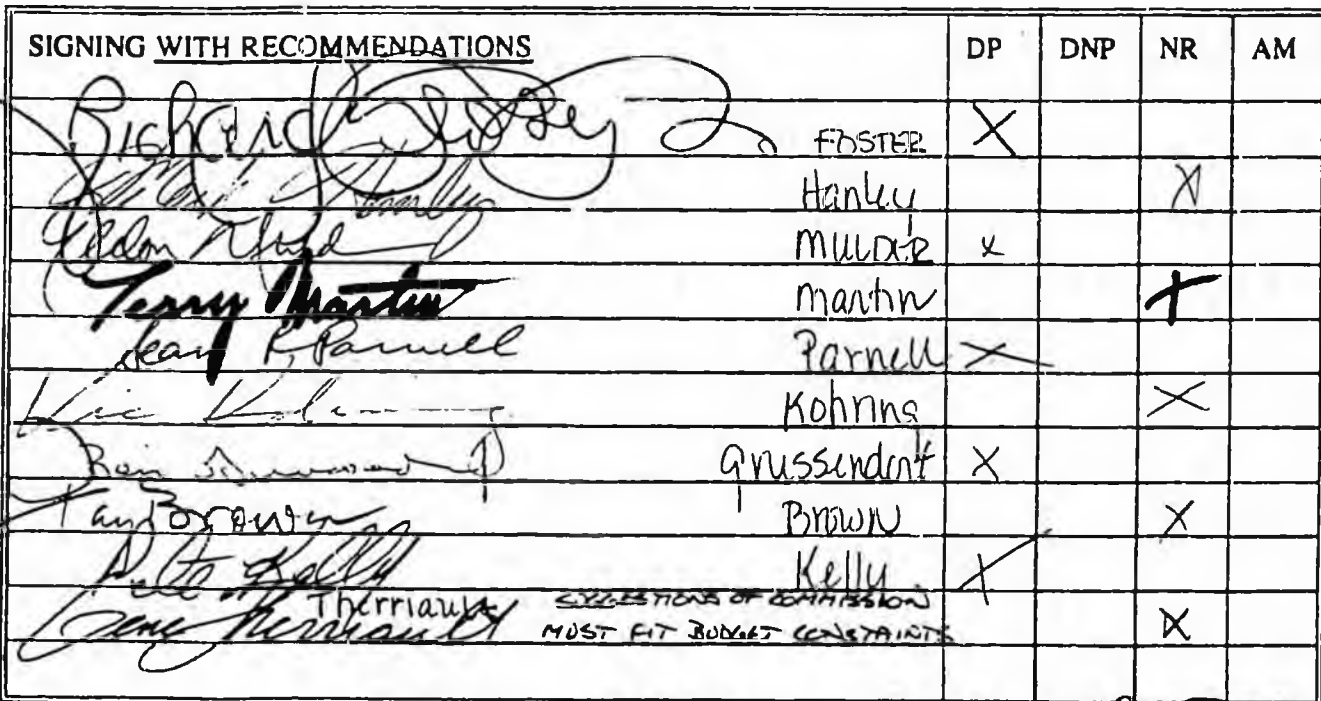 SIGNING WITH RECOMMENDATIONS DP DNP NR AM
Richard Foster FOSTER X
Hanley X
MULDER X
Terry Martin Martin X
Sean R Parnell Parnell X
Vic Kohring X
Grussendorf X
Kay Brown Brown X
Pete Kelly Kelly X
Gene Therriault Therriault SUGGESTIONS OF COMMISSION MUST FIT BUDGET CONSTAINTS X